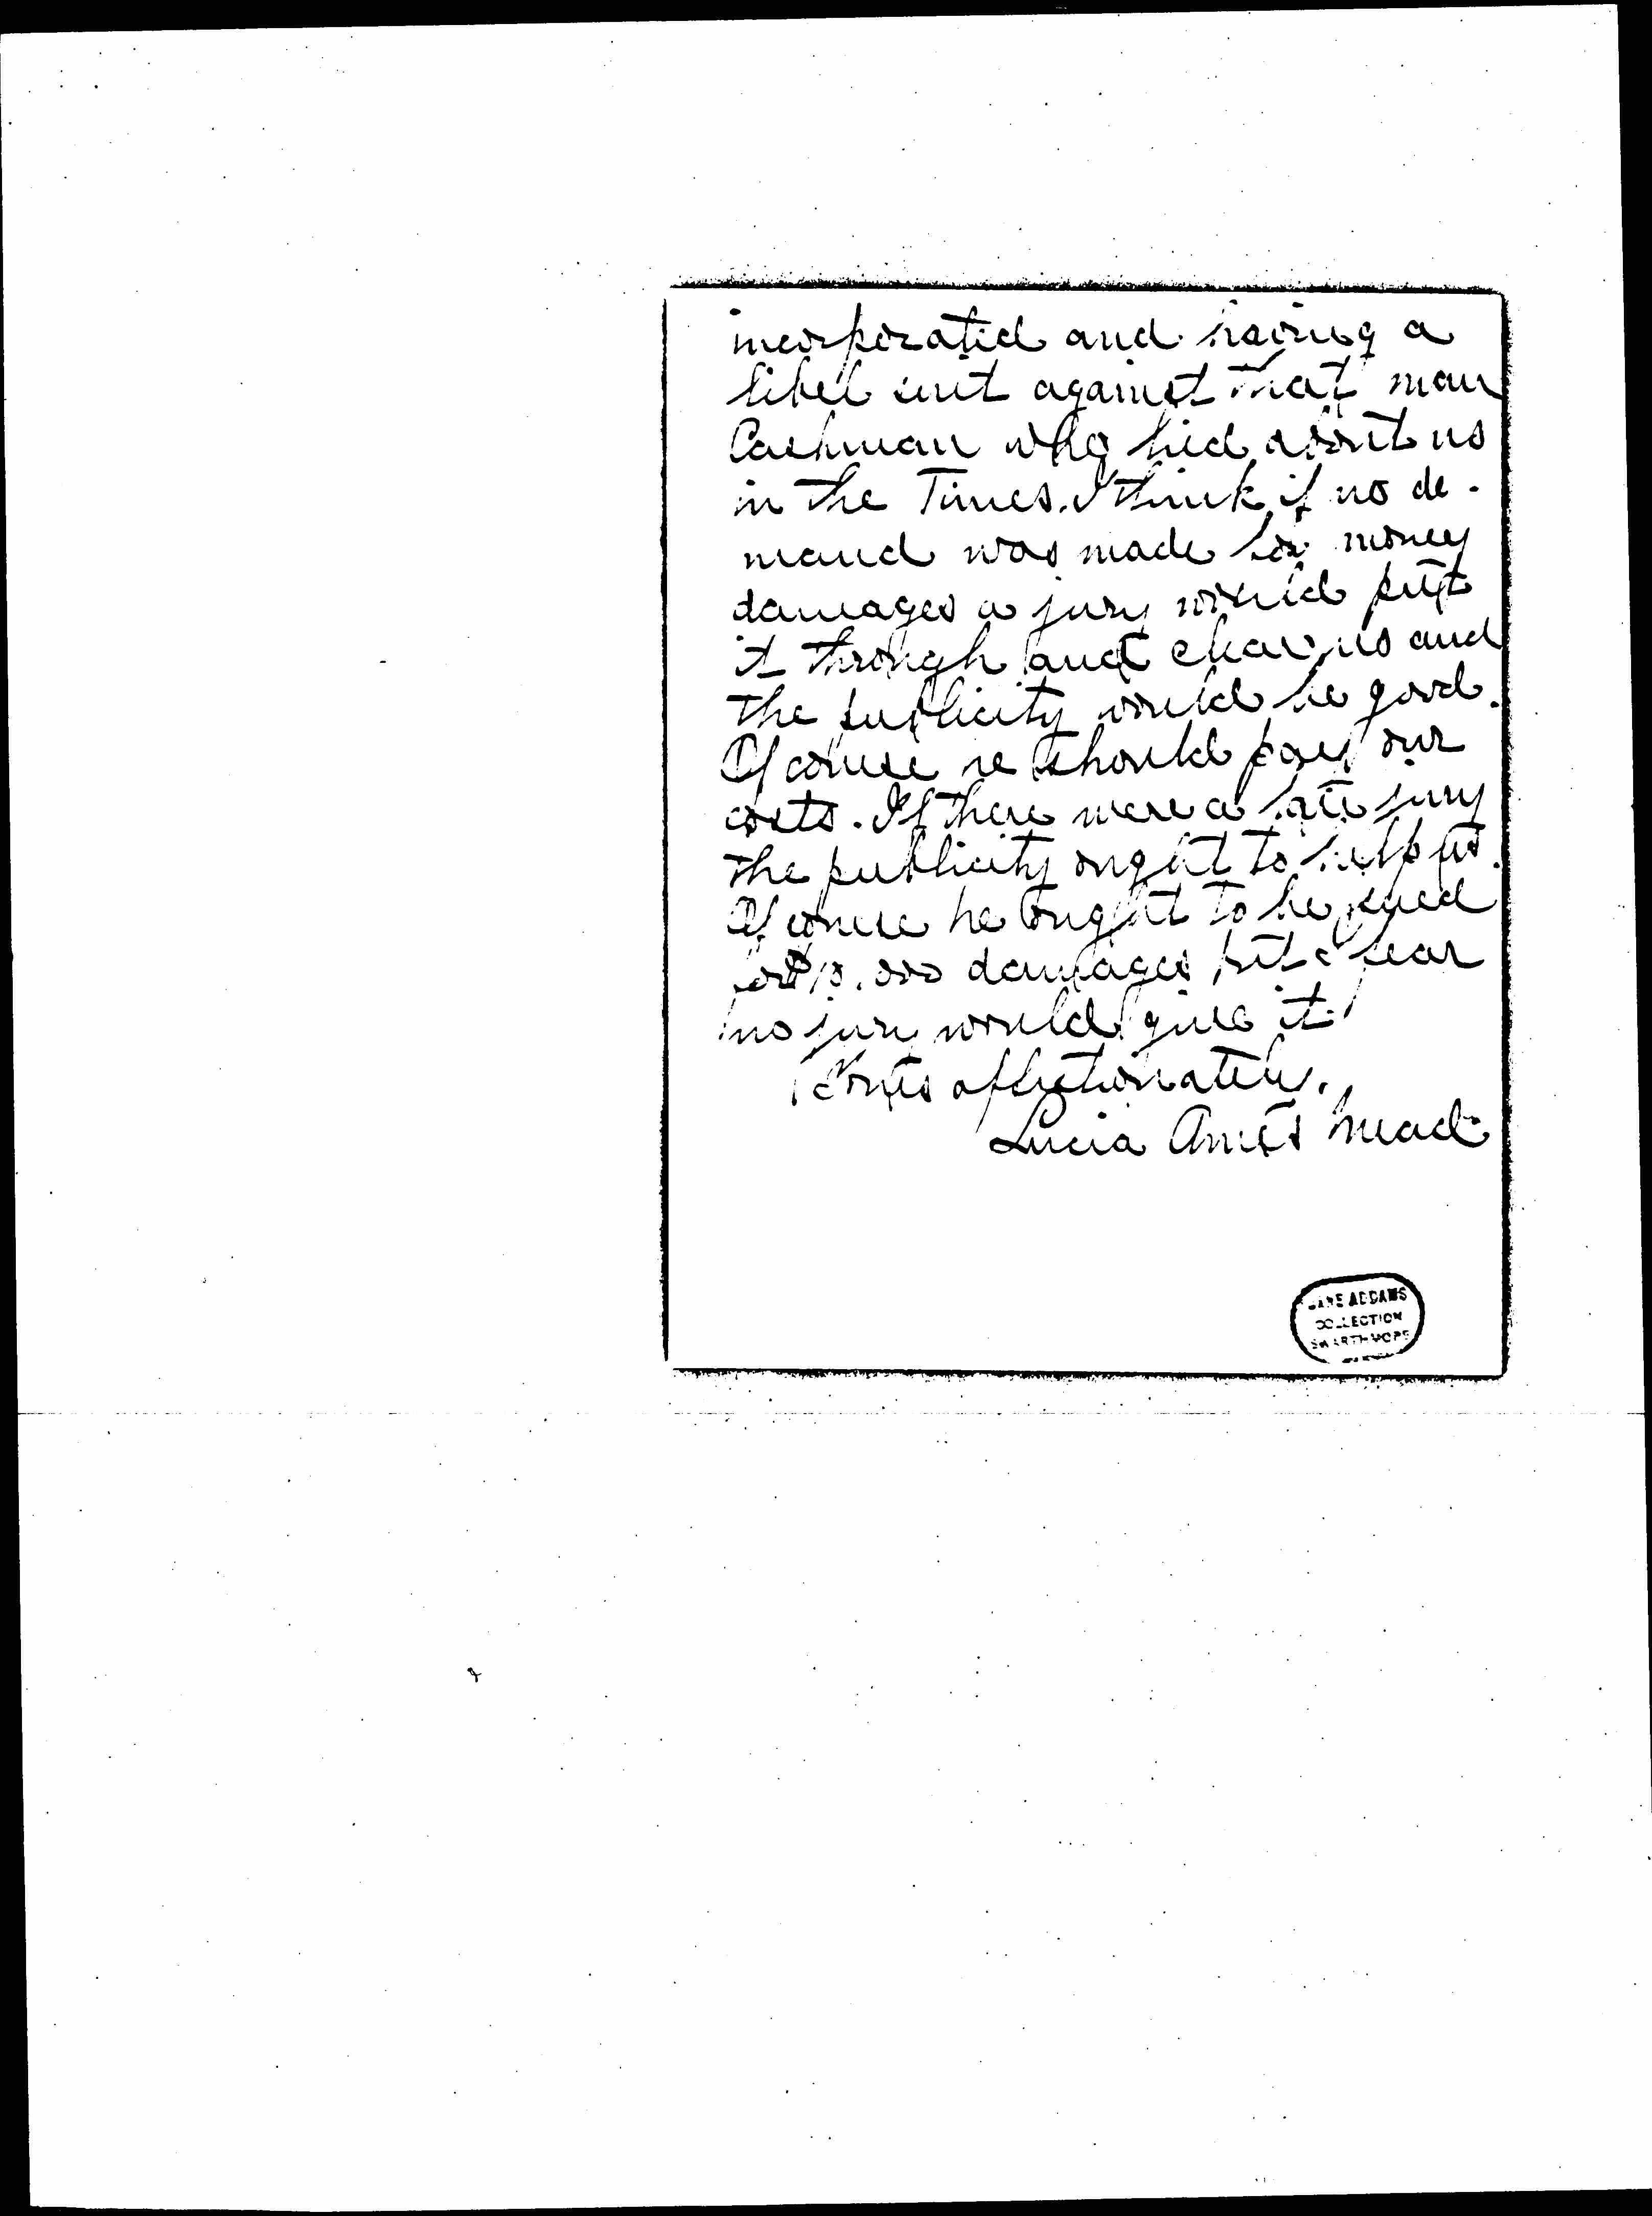 incorporated and having a
libel suit against that man
Cashman who lied about us
in the Times. I think if no de-
mand was made for money
damages a jury would put
it through and clear us and
the publicity would be good.
Of course he should pay our
costs. If there were a fair jury
the publicity ought to help us.
Of course he ought to be sued
for $10,000 damages but I fear
no jury would give it.
Yours affectionately,
Lucia Ames Mead
JANE ADDAMS
COLLECTION
SWARTHMORE